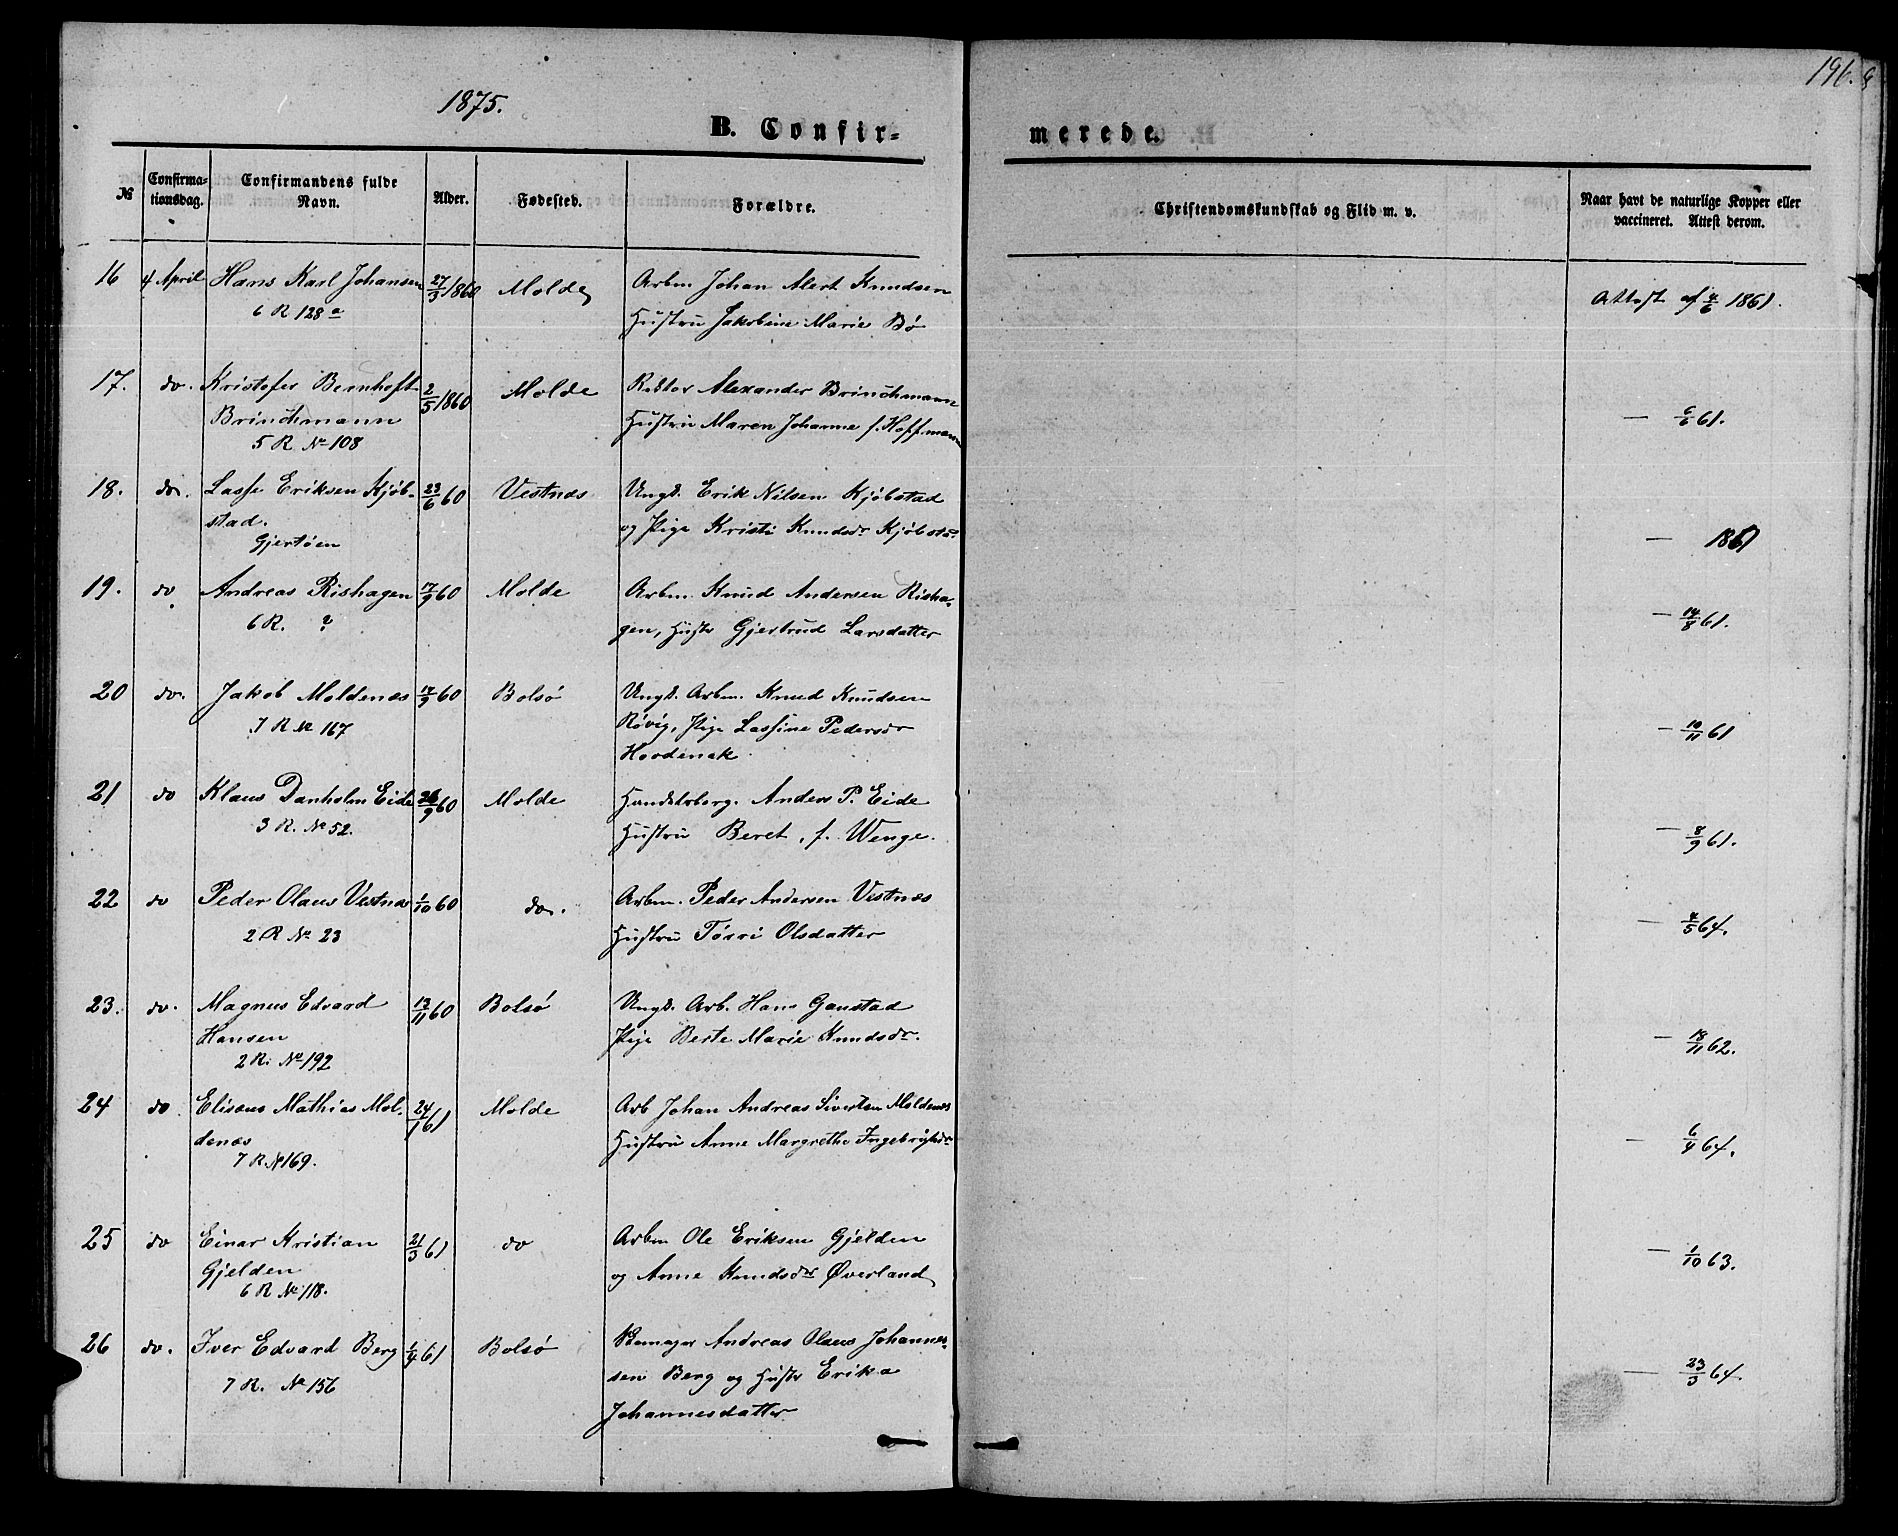 196.
1875.
B. Confir-
merede.
№
Confirma-
tionsdag.
Confirmandens fulde
Navn.
Alder.
Fødested.
Forældre.
Christendomskundskab og Flid m. v.
Naar havt de naturlige Kopper eller
vaccineret. Attest derom.
16 4 April Hans Karl Johansen 27/3 1860 Molde Arbm Johan Alert Knudsen
6 R 128a Hustru Jakobine Marie Bø
Attest af 4/6 1861.
17. do. Kristofer Bernhoft 2/5 1860 Molde Rektor Alexander Brinchmann
Brinchmann Hustru Maren Johanne f. Hoffmann
5 R № 108
— 6/6 61.
18. do. Lasse Eriksen Kjöb- 23/6 60 Vestnæs Ungk. Erik Nilsen Kjöbstad
stad. og Pige Kristi Knudsdr Kjöbsta
Gjertöen
— 1861
19. do Andreas Rishagen 17/9 60 Molde Arbm. Knud Andersen Risha-
6 R. ? gen, Hustr Gjertrud Larsdatter
— 14/8 61.
20 do. Jakob Moldenæs 17/9 60 Bolsø Ungk. Arbm. Knud Knudsen
7 R № 167 Røvig, Pige Lassine Pedersdr
— 10/11 61
21 do Klaus Danholm Eide 26/9 60 Molde Handelsborg. Anders P. Eide
3 R. № 52. Hustru Beret, f. Wenge.
— 8/9 61.
22 do Peder Olaus Vestnæs 1/10 60 do. Arbm. Peder Andersen Vestnæs
2 R № 23 Hustru Olsdatter
— 4/5 64.
23. do. Magnus Edvard 13/11 60 Bolsö Ungk. Arb. Hans Ganstad
Hansen Pige Beste Marie Knudsdr.
2 R. № 192
— 18/11 62.
24 do Elisæus Mathias Mol- 24/1 61 Molde Arb Johan Andreas Sivertsen Moldenæs
denæs Hustru Anne Margrethe Ingebrigtsdr
7 R. № 169.
— 6/4 64.
25 do Einar Kristian 21/3 61 do Arbm Ole Eriksen Gjelden
Gjelden og Anne Knudsdr Øverland
6 R № 118.
— 1/10 63.
26 do. Iver Edvard Berg 1/4 61 Bolsö Andreas Olaus Johannes-
7 R. № 156 sen Berg og Hustr Erika
Johannesdatter
— 23/3 64.